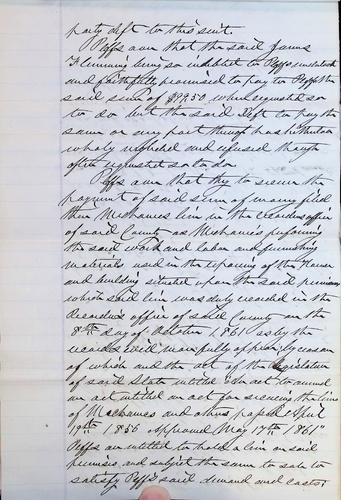 party deft to this suit.
Plffs aver that the said James
Flemming being so indebted to Plffs undertook
and faithfully promised to pay to Plffs the
said sum of $99.50 when requested so
to do but the said deft to pay the
same or any part though has hitherto
wholy neglected and refused though
often requested so to do
Plffs aver that they to secure the
payment of said sum of money filed
their Mechanics lien in the Recorders office
of said County as Mechanics performing
the said work and labor and furnishing
materials used in the repairing of the House
and building situated upon the said premises
which said lien was duly recorded in the
Recorders office of said County on the
8th day of October 1861 as by the
records will more fully appear, by reason
of which and the act of the Legislature
of said State entitled "An act to amend
an act entitled an act for securing the liens
of Mechanics and others passed April
19th 1856 approved May 17th 1861"
Plffs are entitled to hold a lien on said
premises and subject the same to sale to
satisfy Plffs said demand and costs